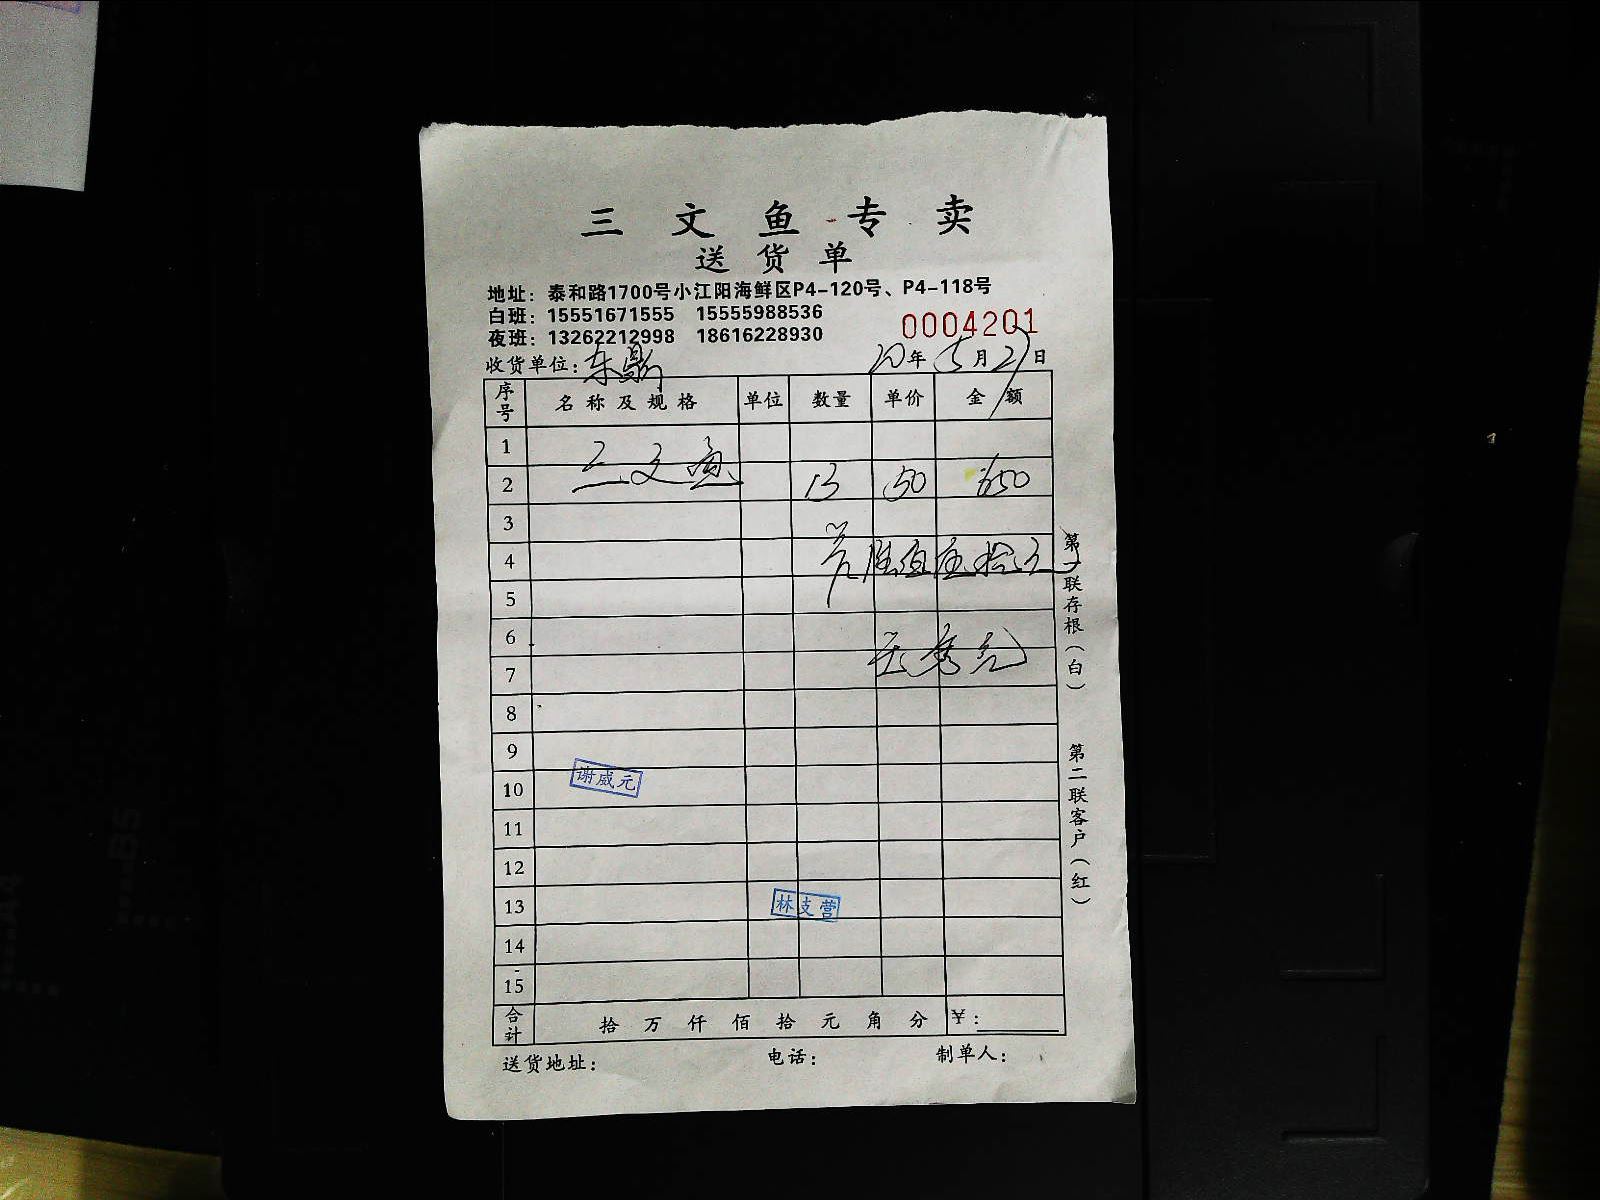 三文鱼专卖
送货单
地址：泰和路1700号小江阳海鲜区P4-120号、P4-118号
白班：15551671555 15555988536
夜班：13262212998 18616228930
0004201
收货单位：东鼎 20年5月21日
序号 名称及规格 单位 数量 单价 金额
1
三文鱼
2 13 50 650
3
4 陆佰伍拾元
5
6
7
8
9
谢威元
10
11
12
13 林支营
14
15
合计 拾万仟佰拾元角分 ￥：
送货地址： 电话： 制单人：
第一联存根（白）
第二联客户（红）